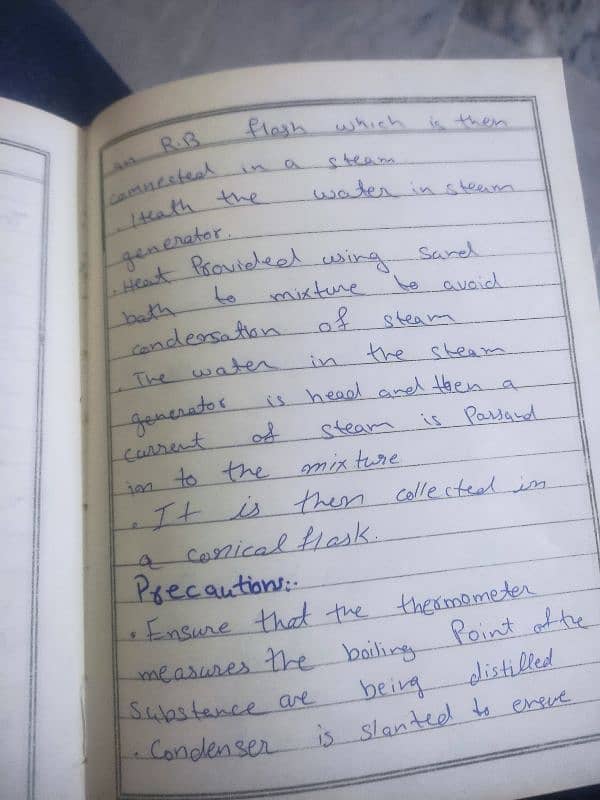 an R.B flash which is then
connected in a steam
. Heath the water in steam
generator.
. Heat Provided using Sand
bath to mixture to avoid
condersation of steam
. The water in the steam
generator is head and then a
current of steam is Passand
ion to the mixture
. It is then collected in
a conical flask.
Precautions:.
. Ensure that the thermometer
measures the boiling Point of the
Substance are being distilled
. Condenser is slanted to ereve